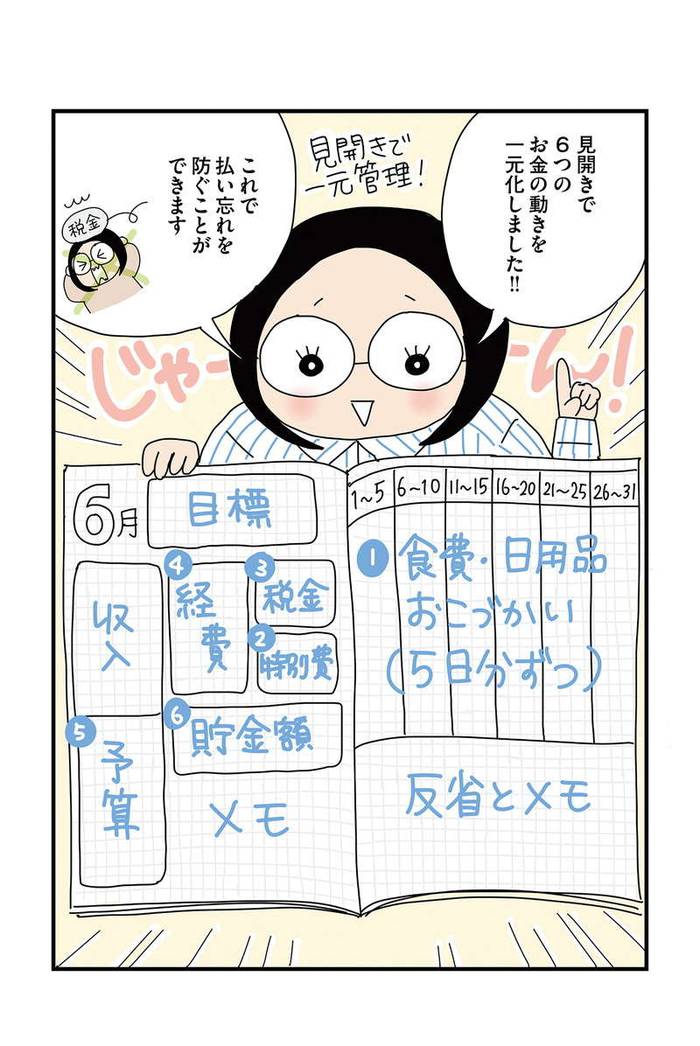 見開きで
6つの
お金の動きを
一元化しました!!
見開きで
一元管理!
これで
払い忘れを
防ぐことが
できます
税金
じゃーーん!
6月
目標
収入
④経費
③税金
②特別費
⑤予算
⑥貯金額
メモ
1~5 6~10 11~15 16~20 21~25 26~31
①食費・日用品
おこづかい
(5日分ずつ)
反省とメモ